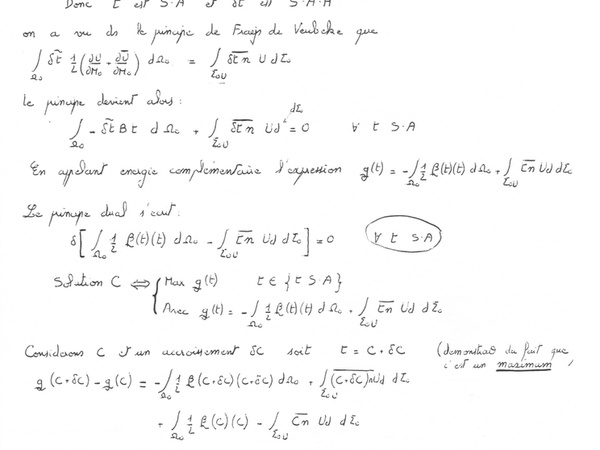 Donc t est S.A et δt est S.A.H
on a vu ds le principe de Fraijs de Veubeke que
∫_Ω₀ δt̃ 1/2 (∂U/∂M₀ + ∂Ū/∂M₀) dΩ₀ = ∫_Σ₀U δ̅t̅n̅ U dΣ₀
le principe devient alors :
∫_Ω₀ - δt̃ B t dΩ₀ + ∫_Σ₀U δ̅t̅n̅ Ud dΣ₀ = 0 ∀ t S.A
En appelant energie complementaire l'expression g(t) = - ∫_Ω₀ 1/2 β(t)(t) dΩ₀ + ∫_Σ₀U t̅n̅ Ud dΣ₀
Le principe dual s'ecrit :
δ[ ∫_Ω₀ 1/2 β(t)(t) dΩ₀ - ∫_Σ₀U t̅n̅ Ud dΣ₀ ] = 0 ∀ t S.A
Solution C ⟺ { Max g(t) t ∈ {t S.A}
Avec g(t) = - ∫_Ω₀ 1/2 β(t)(t) dΩ₀ + ∫_Σ₀U t̅n̅ Ud dΣ₀
Considerons C et un accroissement δC soit t = C + δC (demonstrat° du fait que
c'est un maximum
g(C+δC) - g(C) = - ∫_Ω₀ 1/2 β(C+δC)(C+δC) dΩ₀ + ∫_Σ₀U (C+δC)n Ud dΣ₀
+ ∫_Ω₀ 1/2 β(C)(C) - ∫_Σ₀U C̅n̅ Ud dΣ₀